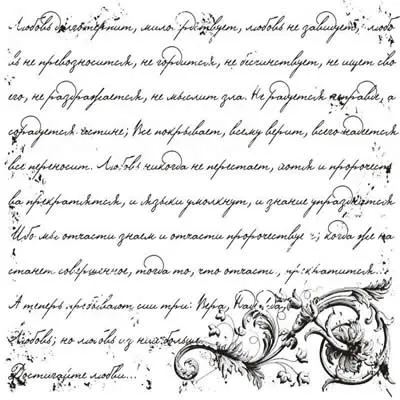 Любовь долготерпит, милосердствует, любовь не завидует, любо
вь не превозносится, не гордится, не бесчинствует, не ищет сво
его, не раздражается, не мыслит зла. Не радуется неправде, а
сорадуется истине; Все покрывает, всему верит, всего надеется
все переносит. Любовь никогда не перестает, хотя и пророчест
ва прекратятся, и языки умолкнут, и знание упразднится
Ибо мы отчасти знаем и отчасти пророчествуем; когда же на
станет совершенное, тогда то, что отчасти, прекратится...
А теперь пребывают сии три: Вера, Надежда,
Любовь; но любовь из них больше.
Достигайте любви...